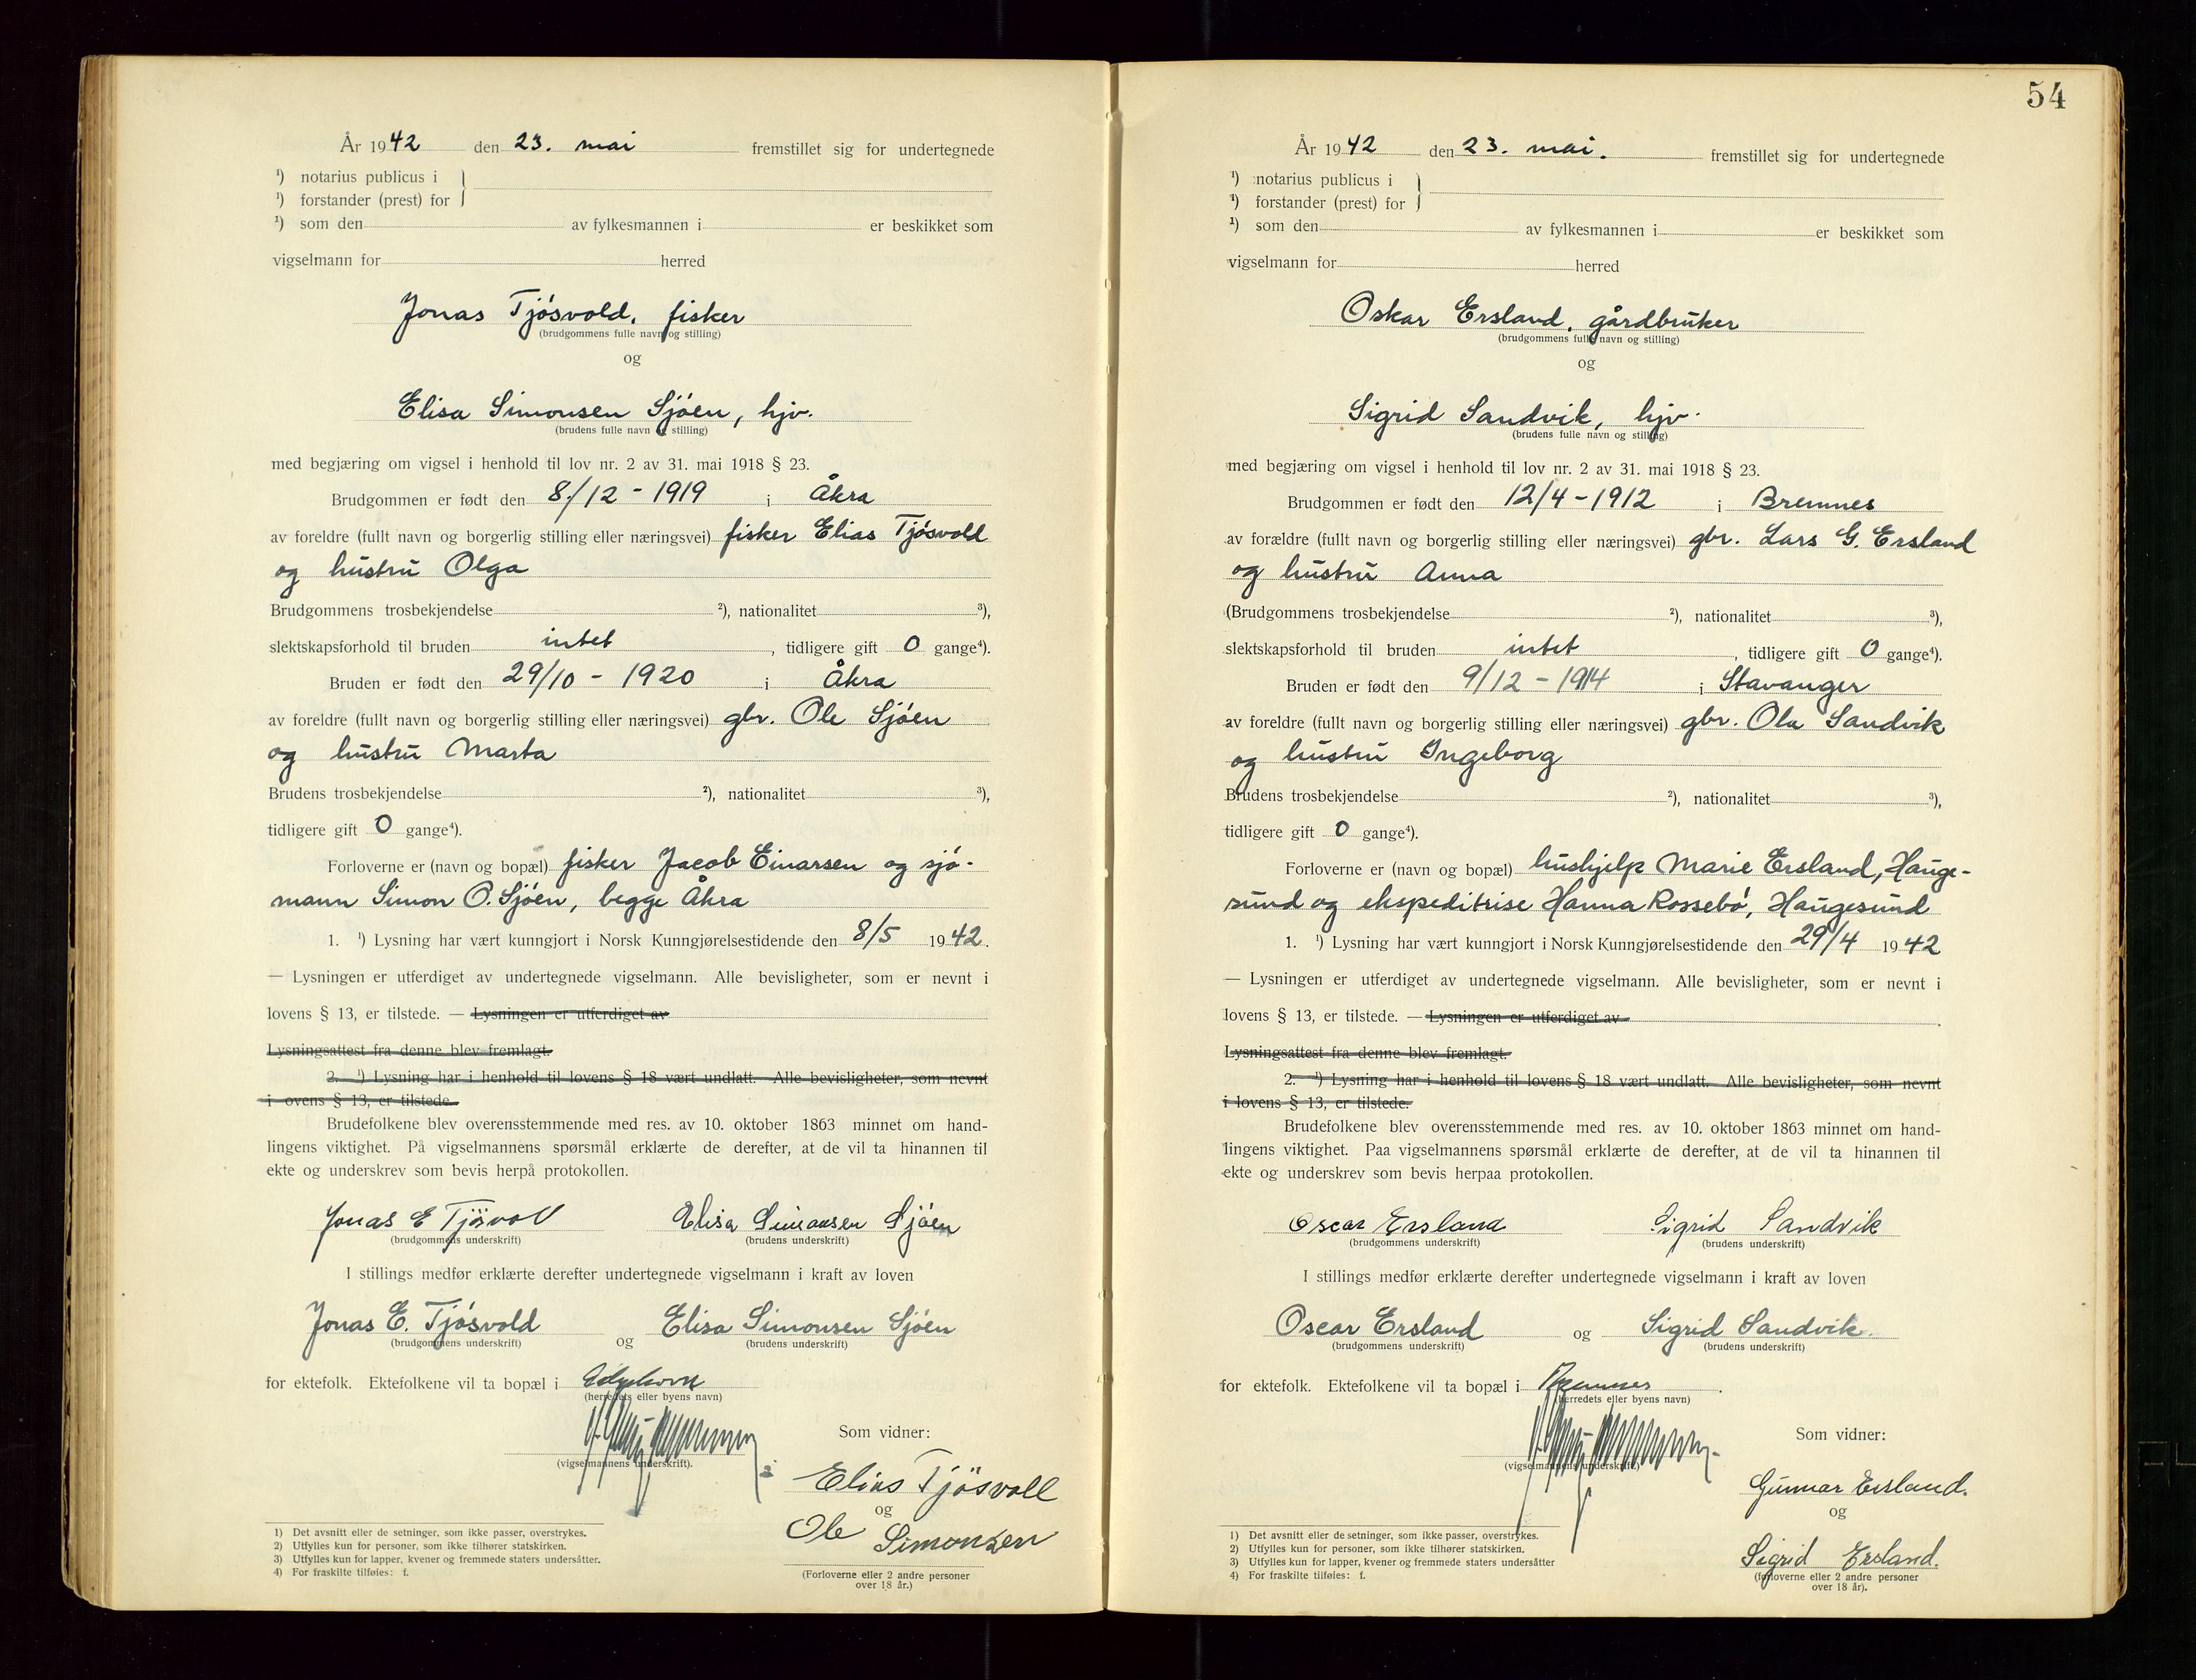 År 1942 den 23. mai fremstillet sig for undertegnede
¹) notarius publicus i
¹) forstander (prest) for
¹) som den av fylkesmannen i er beskikket som
vigselmann for herred
Jonas Tjøsvold, fisker
(brudgommens fulle navn og stilling)
og
Elisa Simonsen Sjøen, hjv.
(brudens fulle navn og stilling)
med begjæring om vigsel i henhold til lov nr. 2 av 31. mai 1918 § 23.
Brudgommen er født den 8/12 - 1919 i Åkra
av foreldre (fullt navn og borgerlig stilling eller næringsvei) fisker Elias Tjøsvoll
og hustru Olga
Brudgommens trosbekjendelse ²), nationalitet ³),
slektskapsforhold til bruden intet, tidligere gift 0 gange⁴).
Bruden er født den 29/10 - 1920 i Åkra
av foreldre (fullt navn og borgerlig stilling eller næringsvei) gbr. Ole Sjøen
og hustru Marta
Brudens trosbekjendelse ²), nationalitet ³),
tidligere gift 0 gange⁴).
Forloverne er (navn og bopæl) fisker Jacob Einarsen og sjø-
mann Simon O. Sjøen, begge Åkra
1. ¹) Lysning har vært kunngjort i Norsk Kunngjørelsestidende den 8/5 1942.
— Lysningen er utferdiget av undertegnede vigselmann. Alle bevisligheter, som er nevnt i
lovens § 13, er tilstede. — Lysningen er utferdiget av
Lysningsattest fra denne blev fremlagt.
2. ¹) Lysning har i henhold til lovens § 18 vært undlatt. Alle bevisligheter, som nevnt
i ovens § 13, er tilstede.
Brudefolkene blev overensstemmende med res. av 10. oktober 1863 minnet om hand-
lingens viktighet. På vigselmannens spørsmål erklærte de derefter, at de vil ta hinannen til
ekte og underskrev som bevis herpå protokollen.
Jonas E Tjøsvoll Elisa Simonsen Sjøen
(brudgommens underskrift) (brudens underskrift)
I stillings medfør erklærte derefter undertegnede vigselmann i kraft av loven
Jonas E. Tjøsvold og Elisa Simonsen Sjøen
(brudgommens underskrift) (brudens underskrift)
for ektefolk. Ektefolkene vil ta bopæl i
(herredets eller byens navn)
Som vidner:
(vigselmannens underskrift).
Elias Tjøsvoll
og
Ole Simonsen
(Forloverne eller 2 andre personer
over 18 år.)
1) Det avsnitt eller de setninger, som ikke passer, overstrykes.
2) Utfylles kun for personer, som ikke tilhører statskirken.
3) Utfylles kun for lapper, kvener og fremmede staters undersåtter.
4) For fraskilte tilføies: f.
54
År 1942 den 23. mai. fremstillet sig for undertegnede
¹) notarius publicus i
¹) forstander (prest) for
¹) som den av fylkesmannen i er beskikket som
vigselmann for herred
Oskar Ersland, gårdbruker
(brudgommens fulle navn og stilling)
og
Sigrid Sandvik, hjv.
(brudens fulle navn og stilling)
med begjæring om vigsel i henhold til lov nr. 2 av 31. mai 1918 § 23.
Brudgommen er født den 12/4 - 1912 i Bremnes
av forældre (fullt navn og borgerlig stilling eller næringsvei) gbr. Lars G. Ersland
og hustru Anna
(Brudgommens trosbekjendelse ²), nationalitet ³),
slektskapsforhold til bruden intet, tidligere gift 0 gange⁴).
Bruden er født den 9/12 - 1914 i Stavanger
av foreldre (fullt navn og borgerlig stilling eller næringsvei) gbr. Ola Sandvik
og hustru Ingeborg
Brudens trosbekjendelse ²), nationalitet ³),
tidligere gift 0 gange⁴).
Forloverne er (navn og bopæl) hushjelp Marie Ersland, Hauge-
sund og ekspeditrise Hanna Rossebø, Haugesund
1. ¹) Lysning har vært kunngjort i Norsk Kunngjørelsestidende den 29/4 1942
— Lysningen er utferdiget av undertegnede vigselmann. Alle bevisligheter, som er nevnt i
lovens § 13, er tilstede. — Lysningen er utferdiget av
Lysningsattest fra denne blev fremlagt.
2. ¹) Lysning har i henhold til lovens § 18 vært undlatt. Alle bevisligheter, som nevnt
i lovens § 13, er tilstede.
Brudefolkene blev overensstemmende med res. av 10. oktober 1863 minnet om hand-
lingens viktighet. Paa vigselmannens spørsmål erklærte de derefter, at de vil ta hinannen til
ekte og underskrev som bevis herpaa protokollen.
Oscar Ersland Sigrid Sandvik
(brudgommens underskrift) (brudens underskrift)
I stillings medfør erklærte derefter undertegnede vigselmann i kraft av loven
Oscar Ersland og Sigrid Sandvik.
(brudgommens underskrift) (brudens underskrift)
for ektefolk. Ektefolkene vil ta bopæl i Bremnes.
(herredets eller byens navn)
Som vidner:
(vigselmannens underskrift.)
Gunnar Ersland.
og
Sigrid Ersland.
(forloverne eller 2 andre personer
over 18 år).
1) Det avsnitt eller de setninger, som ikke passer, overstrykes.
2) Utfylles kun for personer, som ikke tilhører statskirken.
3) Utfylles kun for lapper, kvener og fremmede staters undersåtter
4) For fraskilte tilføies: f.